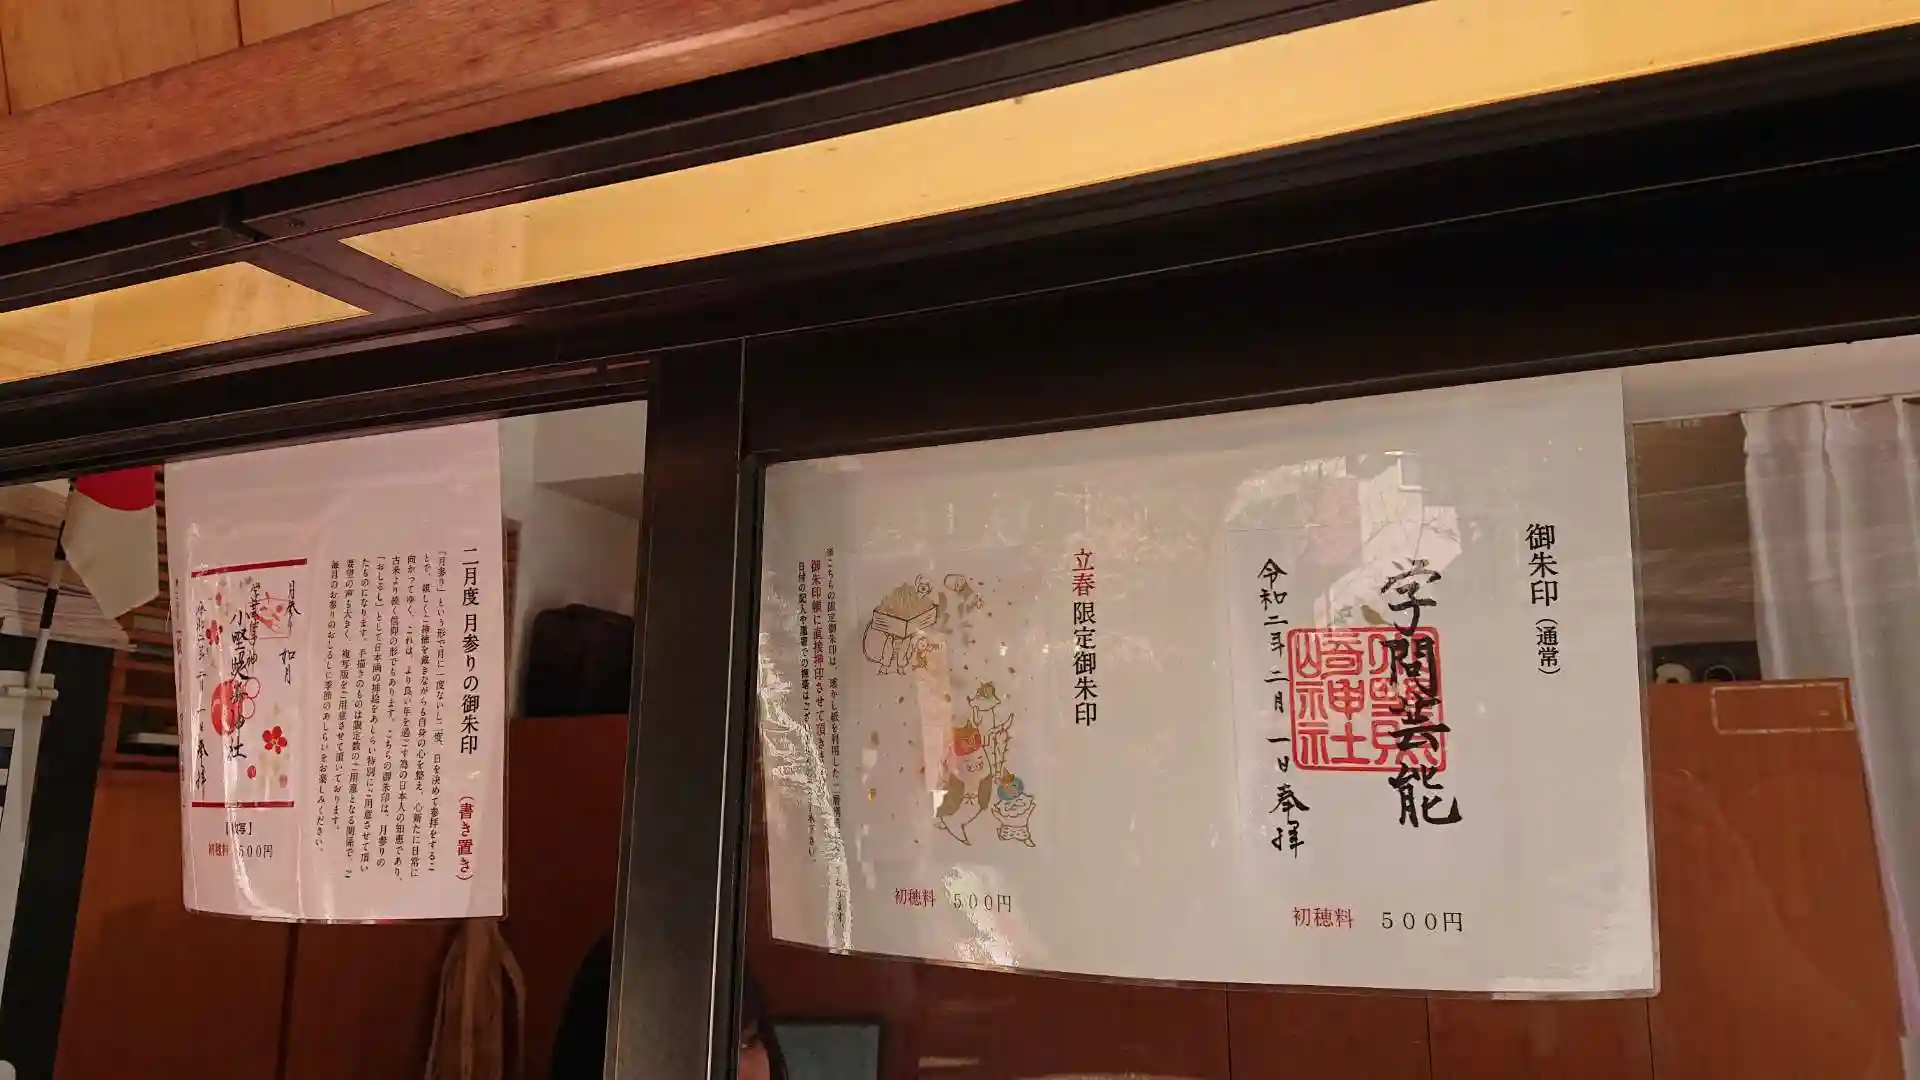 御朱印（通常）
学問芸能
小野照崎神社
令和二年二月一日奉拝
初穂料　５００円
立春限定御朱印
御朱印帳に直接押印させて頂き
初穂料　５００円
二月度 月参りの御朱印（書き置き）
「月参り」という形で月に一度ないし二度、日を決めて参拝をするこ
とで、親しくご神徳を戴きながらも自身の心を整え、心新たに日常に
向かってゆく、これは、より良い年を過ごす為の日本人の知恵であり、
古来より続く信仰の形でもあります。こちらの御朱印は、月参りの
「おしるし」として日本画の挿絵をあしらい特別にご用意させて頂い
たものになります。手描きのものは限定数のご用意となる関係で、ご
要望の声も大きく、複写版をご用意させて頂いております。
毎月のお参りのおしるしに季節のあしらいをお楽しみください。
月参り 如月
小野照崎神社
令和二年二月一日奉拝
初穂料　５００円